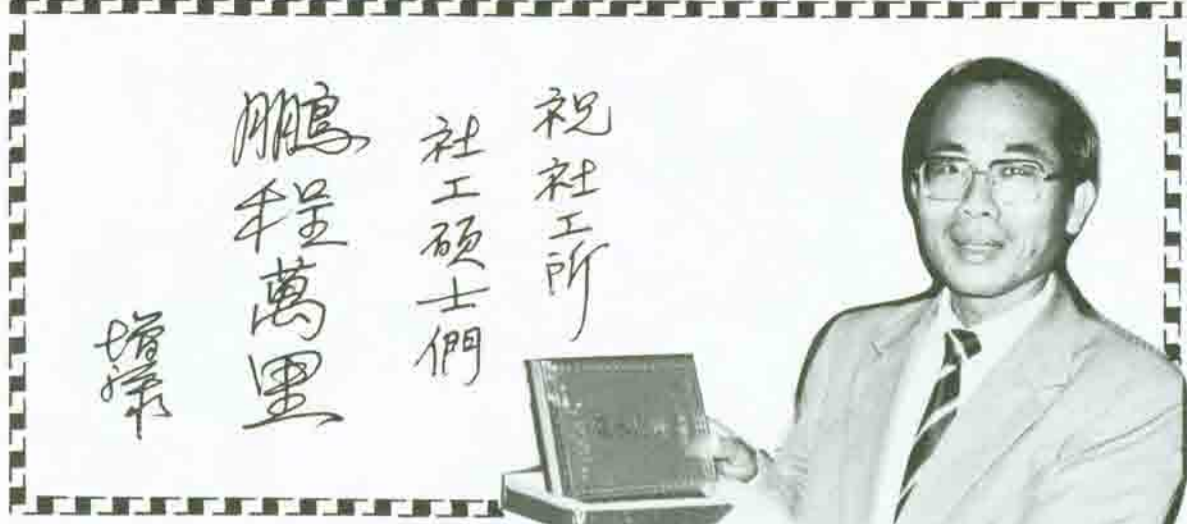 祝社工所
社工碩士們
鵬程萬里
增祿